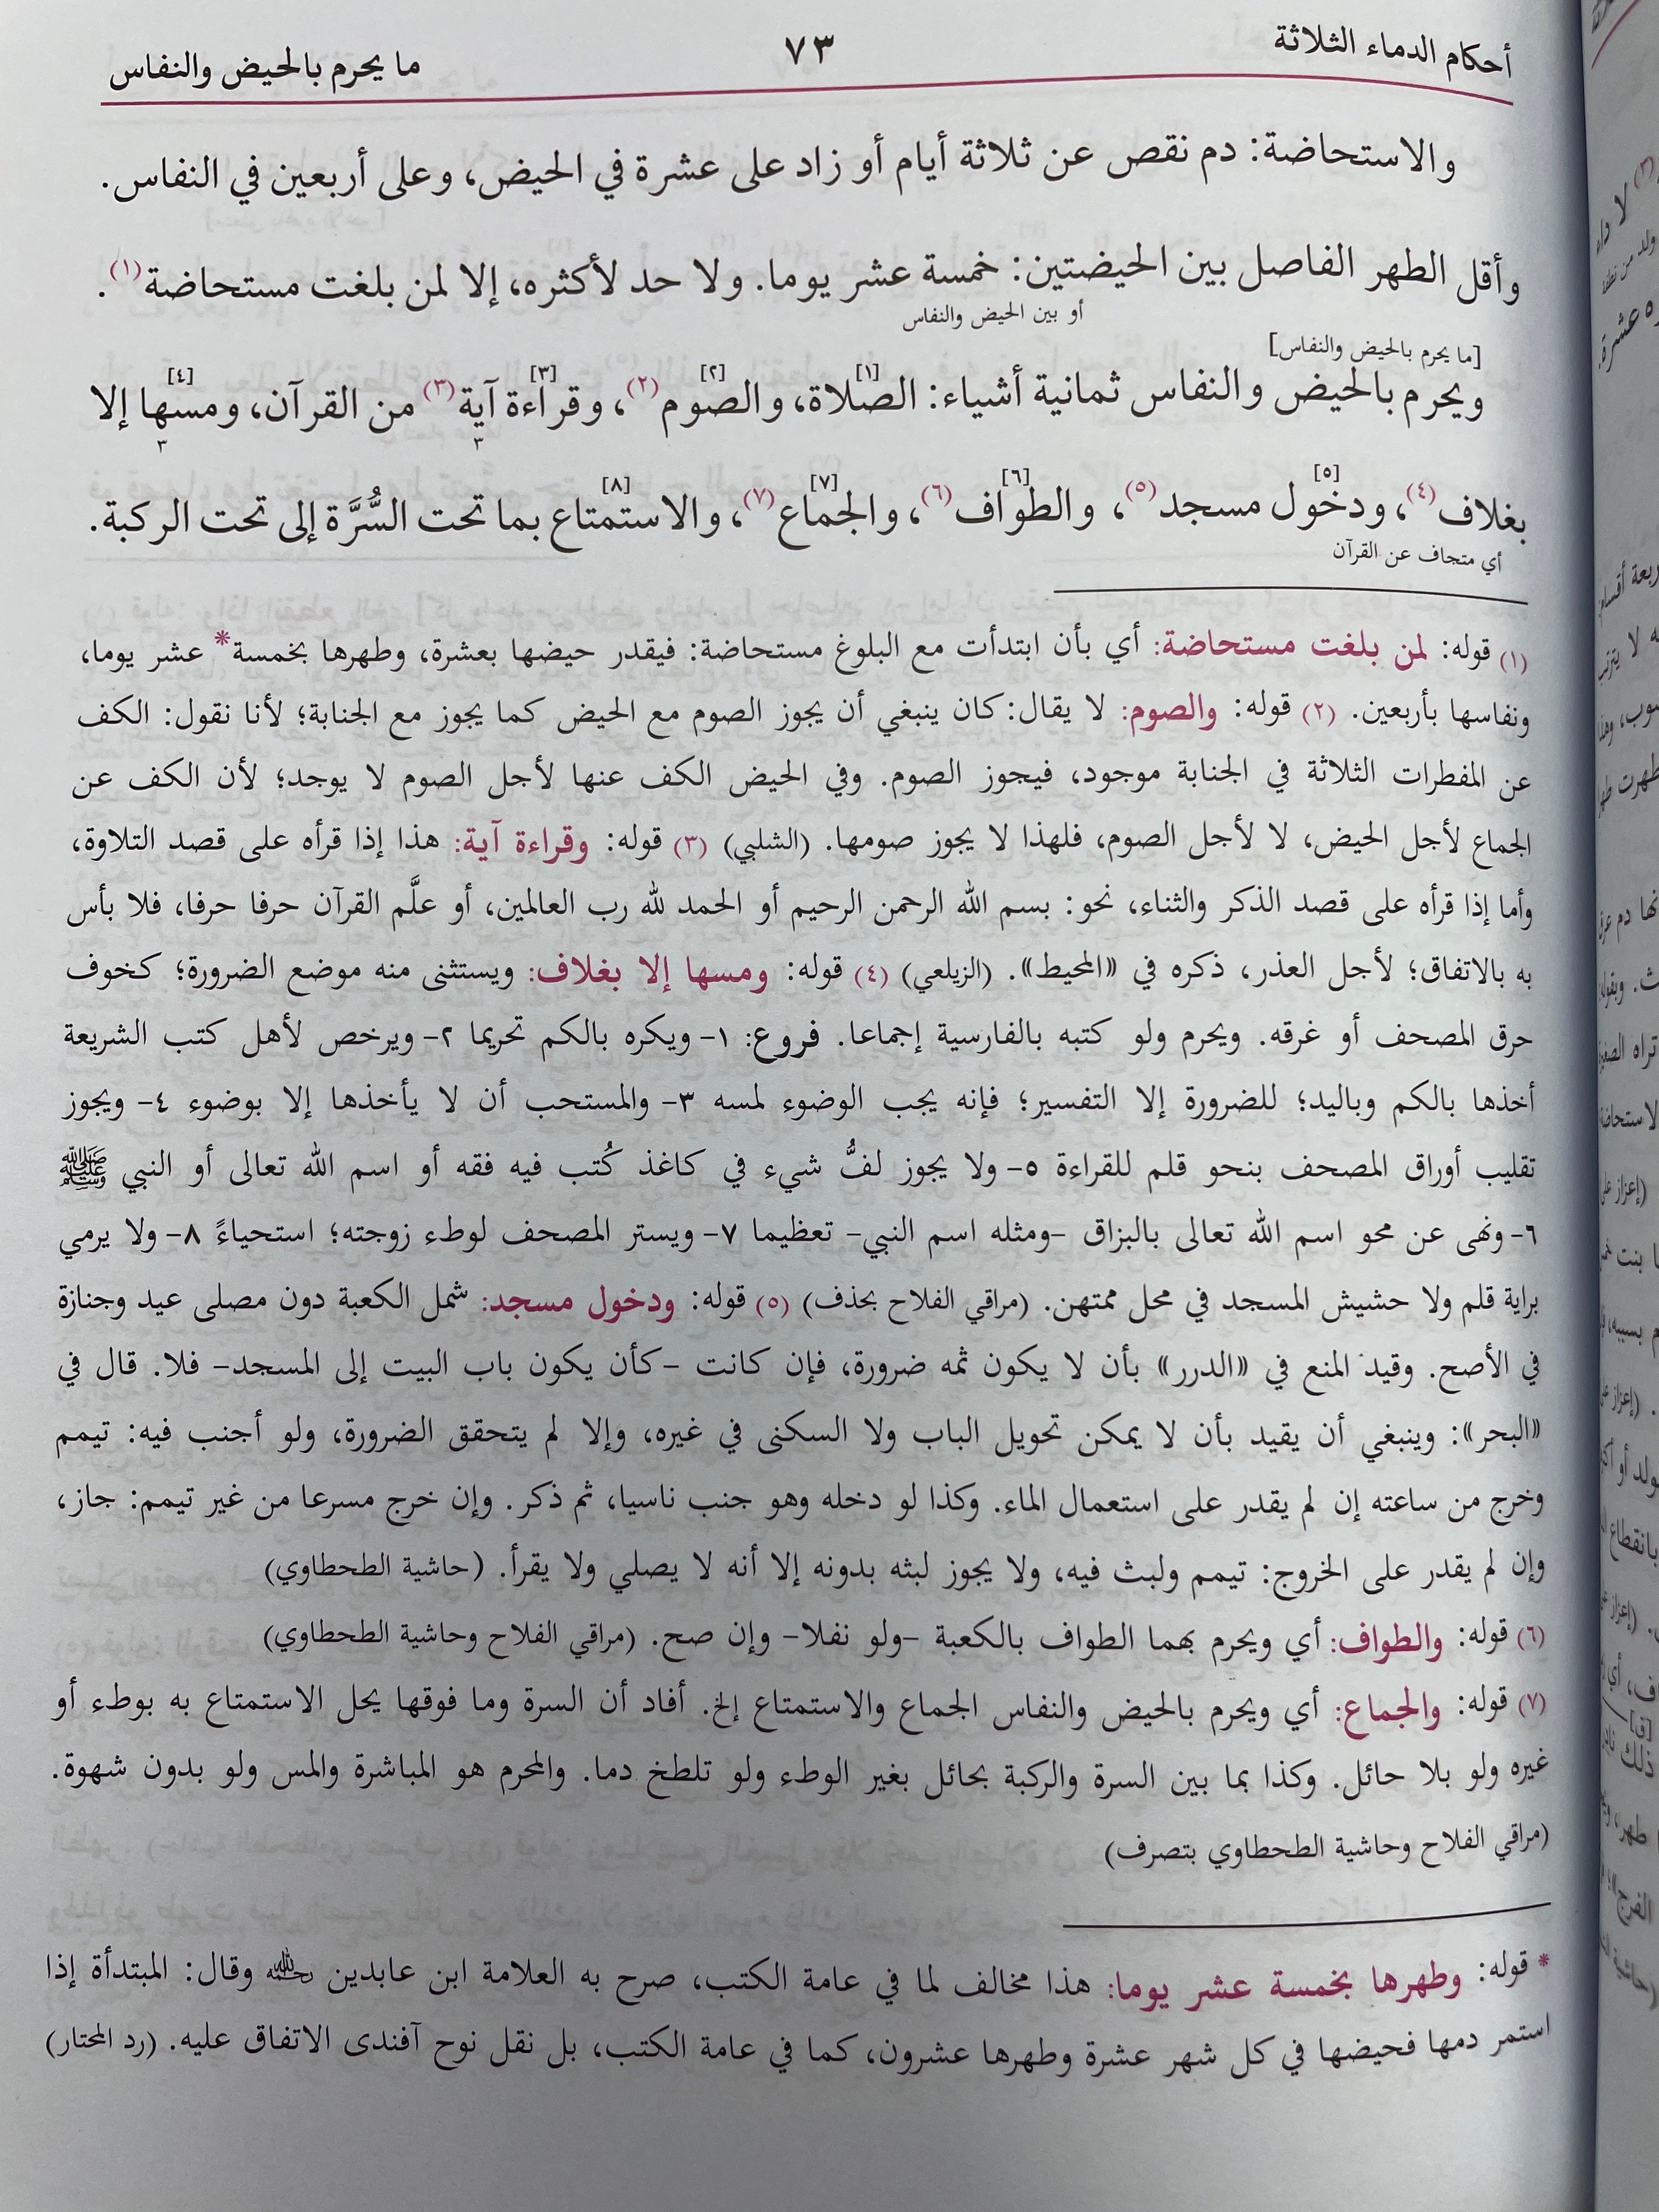 أحكام الدماء الثلاثة ٧٣ ما يحرم بالحيض والنفاس
والاستحاضة: دم نقص عن ثلاثة أيام أو زاد على عشرة في الحيض، وعلى أربعين في النفاس.
وأقل الطهر الفاصل بين الحيضتين: خمسة عشر يوما. ولا حد لأكثره، إلا لمن بلغت مستحاضة(١).
أو بين الحيض والنفاس
[ما يحرم بالحيض والنفاس]
[١] [٢] [٣] [٤]
ويحرم بالحيض والنفاس ثمانية أشياء: الصلاة، والصوم(٢)، وقراءة آية(٣) من القرآن، ومسها إلا
٣ ٣
[٥] [٦] [٧] [٨]
بغلاف(٤)، ودخول مسجد(٥)، والطواف(٦)، والجماع(٧)، والاستمتاع بما تحت السُّرَّة إلى تحت الركبة.
أي متجاف عن القرآن
(١) قوله: لمن بلغت مستحاضة: أي بأن ابتدأت مع البلوغ مستحاضة: فيقدر حيضها بعشرة، وطهرها بخمسة* عشر يوما،
ونفاسها بأربعين. (٢) قوله: والصوم: لا يقال: كان ينبغي أن يجوز الصوم مع الحيض كما يجوز مع الجنابة؛ لأنا نقول: الكف
عن المفطرات الثلاثة في الجنابة موجود، فيجوز الصوم. وفي الحيض الكف عنها لأجل الصوم لا يوجد؛ لأن الكف عن
الجماع لأجل الحيض، لا لأجل الصوم، فلهذا لا يجوز صومها. (الشلبي) (٣) قوله: وقراءة آية: هذا إذا قرأه على قصد التلاوة،
وأما إذا قرأه على قصد الذكر والثناء، نحو: بسم الله الرحمن الرحيم أو الحمد لله رب العالمين، أو علَّم القرآن حرفا حرفا، فلا بأس
به بالاتفاق؛ لأجل العذر، ذكره في «المحيط». (الزيلعي) (٤) قوله: ومسها إلا بغلاف: ويستثنى منه موضع الضرورة؛ كخوف
حرق المصحف أو غرقه. ويحرم ولو كتبه بالفارسية إجماعا. فروع: ١- ويكره بالكم تحريما ٢- ويرخص لأهل كتب الشريعة
أخذها بالكم وباليد؛ للضرورة إلا التفسير؛ فإنه يجب الوضوء لمسه ٣- والمستحب أن لا يأخذها إلا بوضوء ٤- ويجوز
تقليب أوراق المصحف بنحو قلم للقراءة ٥- ولا يجوز لفُّ شيء في كاغذ كُتب فيه فقه أو اسم الله تعالى أو النبي ﷺ
٦- ونهى عن محو اسم الله تعالى بالبزاق -ومثله اسم النبي- تعظيما ٧- ويستر المصحف لوطء زوجته؛ استحياءً ٨- ولا يرمي
براية قلم ولا حشيش المسجد في محل ممتهن. (مراقي الفلاح بحذف) (٥) قوله: ودخول مسجد: شمل الكعبة دون مصلى عيد وجنازة
في الأصح. وقيد المنع في «الدرر» بأن لا يكون ثمه ضرورة، فإن كانت -كأن يكون باب البيت إلى المسجد- فلا. قال في
«البحر»: وينبغي أن يقيد بأن لا يمكن تحويل الباب ولا السكنى في غيره، وإلا لم يتحقق الضرورة، ولو أجنب فيه: تيمم
وخرج من ساعته إن لم يقدر على استعمال الماء. وكذا لو دخله وهو جنب ناسيا، ثم ذكر. وإن خرج مسرعا من غير تيمم: جاز،
وإن لم يقدر على الخروج: تيمم ولبث فيه، ولا يجوز لبثه بدونه إلا أنه لا يصلي ولا يقرأ. (حاشية الطحطاوي)
(٦) قوله: والطواف: أي ويحرم بهما الطواف بالكعبة -ولو نفلا- وإن صح. (مراقي الفلاح وحاشية الطحطاوي)
(٧) قوله: والجماع: أي ويحرم بالحيض والنفاس الجماع والاستمتاع إلخ. أفاد أن السرة وما فوقها يحل الاستمتاع به بوطء أو
غيره ولو بلا حائل. وكذا بما بين السرة والركبة بحائل بغير الوطء ولو تلطخ دما. والمحرم هو المباشرة والمس ولو بدون شهوة.
(مراقي الفلاح وحاشية الطحطاوي بتصرف)
* قوله: وطهرها بخمسة عشر يوما: هذا مخالف لما في عامة الكتب، صرح به العلامة ابن عابدين رحمه الله وقال: المبتدأة إذا
استمر دمها فحيضها في كل شهر عشرة وطهرها عشرون، كما في عامة الكتب، بل نقل نوح آفندى الاتفاق عليه. (رد المحتار)